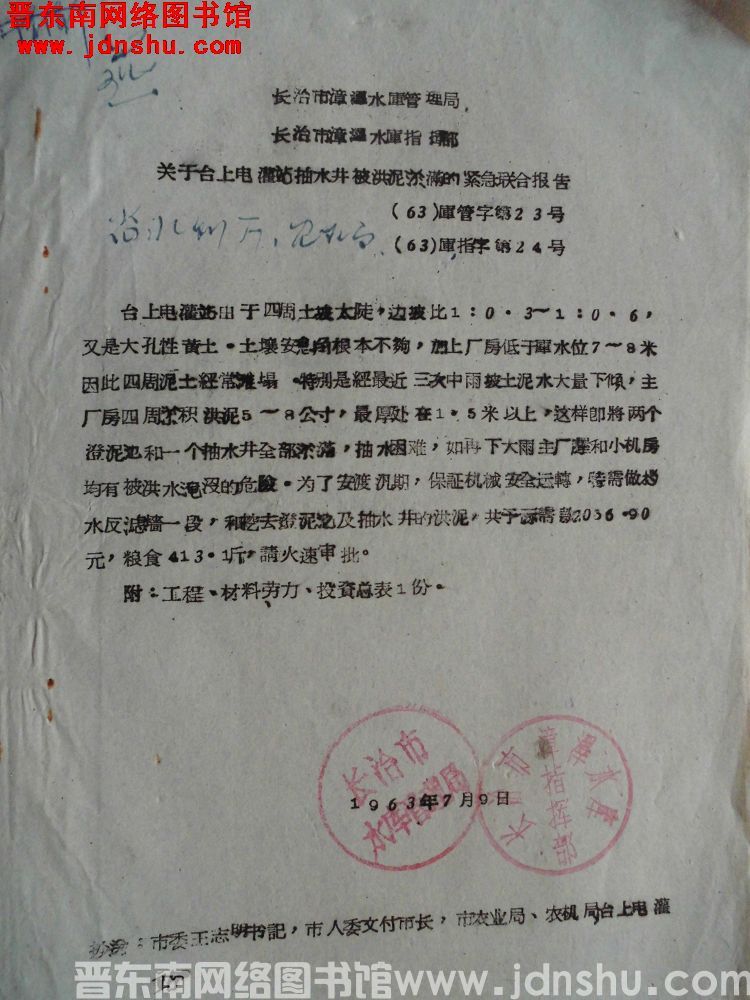 晋东南网络图书馆
www.jdnshu.com
长治市漳澤水庫管理局
长治市漳澤水庫指揮部
关于台上电灌站抽水井被洪泥淤滿的紧急联合报告
(63)庫管字第23号
(63)庫指字第24号
省水利厅
台上电灌站由于四周土坡太陡,边坡比1:0·3～1:0·6,
又是大孔性黄土·土壤安息角根本不夠,加上厂房低于庫水位7～8米
因此四周泥土經常滩塌·特别是經最近三次中雨坡土泥水大量下傾,主
厂房四周淤积洪泥5～8公寸,最厚处在1·5米以上,这样即將两个
澄泥池和一个抽水井全部淤滿,抽水困难,如再下大雨主厂房和小机房
均有被洪水淹沒的危险·为了安渡汛期,保証机械安全运轉,特需做挡
水反滤墙一段,和挖去澄泥池及抽水井的洪泥,共予需款2036·90
元,粮食413·1斤,請火速审批。
附:工程、材料劳力、投資总表1份·
长治市
水库管理局
长治市漳泽水库
指挥部
1963年7月9日
抄送:市委王志明书記,市人委文付市长,市农业局、农机局台上电灌
晋东南网络图书馆www.jdnshu.com